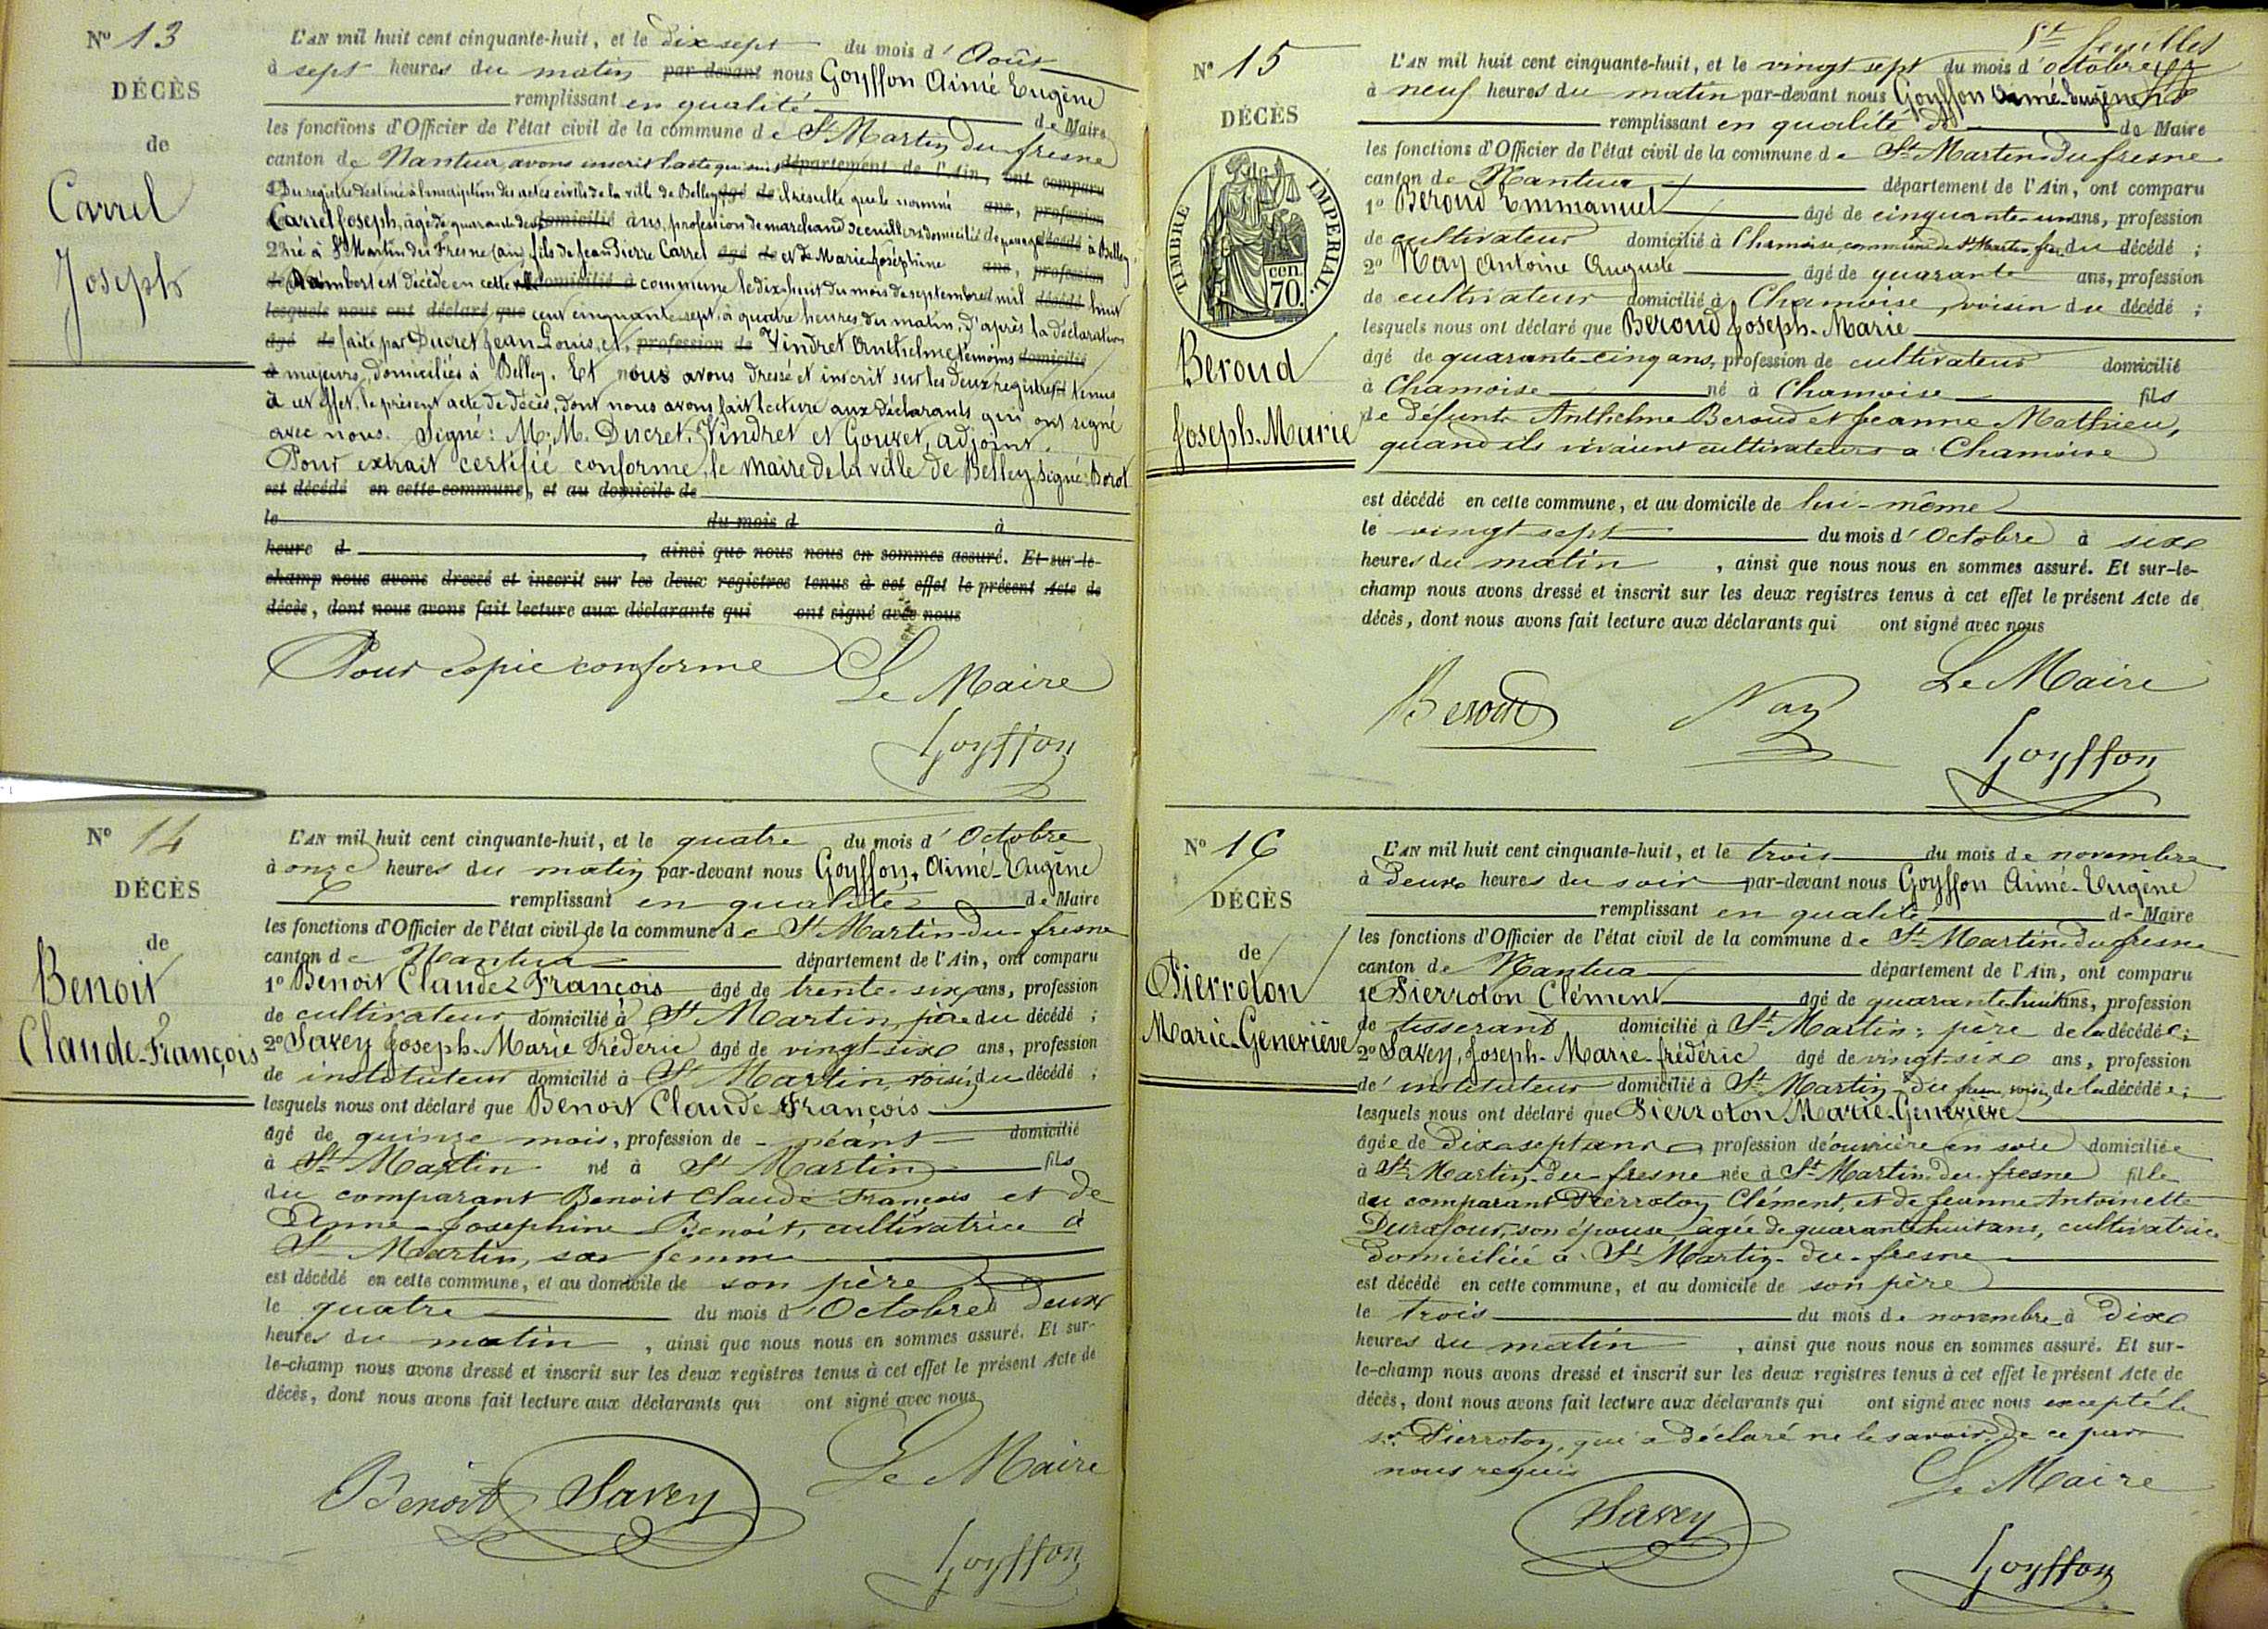 Nº 13
DÉCÈS
de
Carrel
Joseph
L'AN mil huit cent cinquante-huit, et le dix sept du mois d'Août
à sept heures du matin par-devant nous Goyffon Aimé Eugène
remplissant en qualité de Maire
les fonctions d'Officier de l'état civil de la commune de St Martin du fresne
canton de Nantua, avons inscrit l'acte qui suit département de l'Ain, ont comparu
1º Du registre destiné à l'inscription des actes civils de la ville de Belley âgé de il résulte que le nommé ans, profession
Carrel Joseph, âgé de quarante deux domicilié à ans, profession de marchand decuillers domicilié de passage décédé à Belley,
2º né à St Martin du Fresne (ain) fils de Jean Pierre Carrel âgé de et de Marie Joséphine ans, profession
de Rambert est décédé en cette ville domicilié à commune le dix-huit du mois de septembre mil décédé huit
lesquels nous ont déclaré que cent cinquante sept, à quatre heures du matin, d'après la déclaration
âgé de faite par Ducret Jean Louis, et, profession de Vindret Anthelme témoins domicilié
à majeurs, domiciliés à Belley. Et nous avons dressé et inscrit sur les deux registres tenus
à cet effet, le présent acte de décès, dont nous avons fait lecture aux déclarants qui ont signé
avec nous. Signé: M.M. Ducret, Vindret et Gouvet, adjoint.
Pour extrait certifié conforme, le maire de la ville de Belley signé: Borot
est décédé en cette commune, et au domicile de
le du mois d à
heure d , ainsi que nous nous en sommes assuré. Et sur-le-
champ nous avons dressé et inscrit sur les deux registres tenus à cet effet le présent Acte de
décès, dont nous avons fait lecture aux déclarants qui ont signé avec nous
Pour copie conforme Le Maire
Goyffon
Nº 14
DÉCÈS
de
Benoit
Claude-François
L'AN mil huit cent cinquante-huit, et le quatre du mois d'Octobre
à onze heures du matin par-devant nous Goyffon, Aimé-Eugène
remplissant en qualité de Maire
les fonctions d'Officier de l'état civil de la commune de St Martin-du-fresne
canton de Nantua département de l'Ain, ont comparu
1º Benoit Claude François âgé de trente-six ans, profession
de cultivateur domicilié à St Martin, père du décédé ;
2º Savey Joseph-Marie Fréderic âgé de vingt-six ans, profession
de instituteur domicilié à St Martin, voisin du décédé ;
lesquels nous ont déclaré que Benoit Claude François
âgé de quinze mois, profession de - néant - domicilié
à St Martin né à St Martin fils
du comparant Benoit Claude François et de
Anne-Josephine Benoit, cultivatrice à
St Martin, sa femme
est décédé en cette commune, et au domicile de son père
le quatre du mois d'Octobre à deux
heures du matin , ainsi que nous nous en sommes assuré. Et sur-
le-champ nous avons dressé et inscrit sur les deux registres tenus à cet effet le présent Acte de
décès, dont nous avons fait lecture aux déclarants qui ont signé avec nous
Le Maire
Benoit Savey
Goyffon
feuillet
Nº 15
DÉCÈS
de
TIMBRE IMPÉRIAL.
cen.
70.
Beroud
Joseph-Marie
L'AN mil huit cent cinquante-huit, et le vingt sept du mois d'octobre
à neuf heures du matin par-devant nous Goyffon Aimé-Eugène
remplissant en qualité de de Maire
les fonctions d'Officier de l'état civil de la commune de St Martin-du fresne
canton de Nantua département de l'Ain, ont comparu
1º Beroud Emmanuel âgé de cinquante-un ans, profession
de cultivateur domicilié à Chamoise, commune de St Martin, du décédé ;
2º Nay Antoine Auguste âgé de quarante ans, profession
de cultivateur domicilié à Chamoise, voisin du décédé ;
lesquels nous ont déclaré que Beroud Joseph-Marie
âgé de quarante-cinq ans, profession de cultivateur domicilié
à Chamoise né à Chamoise fils
de défunts Anthelme Beroud et Jeanne Mathieu,
quand ils vivaient cultivateurs a Chamoise
est décédé en cette commune, et au domicile de lui-même
le vingt-sept du mois d'Octobre à six
heures du matin , ainsi que nous nous en sommes assuré. Et sur-le-
champ nous avons dressé et inscrit sur les deux registres tenus à cet effet le présent Acte de
décès, dont nous avons fait lecture aux déclarants qui ont signé avec nous
Le Maire
Beroud Nay
Goyffon
Nº 16
DÉCÈS
de
Pierroton
Marie-Geneviève
L'AN mil huit cent cinquante-huit, et le trois du mois de novembre
à deux heures du soir par-devant nous Goyffon Aimé-Eugène
remplissant en qualité de Maire
les fonctions d'Officier de l'état civil de la commune de St Martin-du fresne
canton de Nantua département de l'Ain, ont comparu
1º Pierroton Clément âgé de quarante-huit ans, profession
de tisserand domicilié à St Martin, père de la décédée ;
2º Savey, Joseph-Marie-frédéric âgé de vingt-six ans, profession
de instituteur domicilié à St Martin-du fresne, voisin de la décédée ;
lesquels nous ont déclaré que Pierroton Marie-Geneviève
âgée de dix-sept ans profession de ouvrière en soie domiciliée
à St Martin-du-fresne née à St Martin-du-fresne fille
du comparant Pierroton Clément, et de Jeanne Antoinette
Durafour, son épouse, agée de quarante huit ans, cultivatrice
domiciliée à St Martin-du-fresne
est décédé en cette commune, et au domicile de son père
le trois du mois de novembre à dix
heures du matin , ainsi que nous nous en sommes assuré. Et sur-
le-champ nous avons dressé et inscrit sur les deux registres tenus à cet effet le présent Acte de
décès, dont nous avons fait lecture aux déclarants qui ont signé avec nous excepté le
sr. Pierroton, qui a déclaré ne le savoir, de ce par
nous requis
Le Maire
Savey
Goyffon